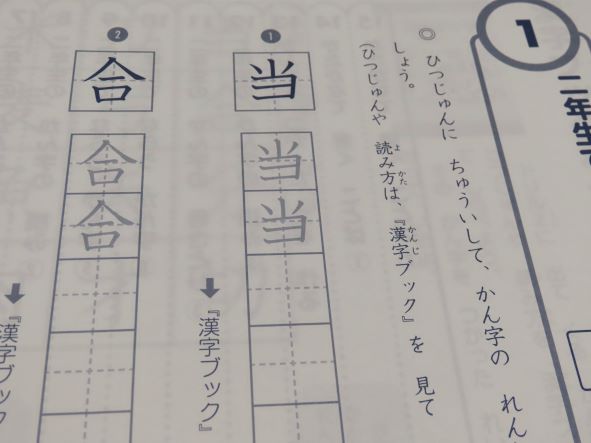 1
二年生で
◎ ひつじゅんに ちゅういして、かん字の れん
しょう。
(ひつじゅんや 読み方は、『漢字ブック』を 見て
よ
かた
かんじ
❶
当
当
当
↓『漢字ブック』
❷
合
合
合
↓『漢字ブック